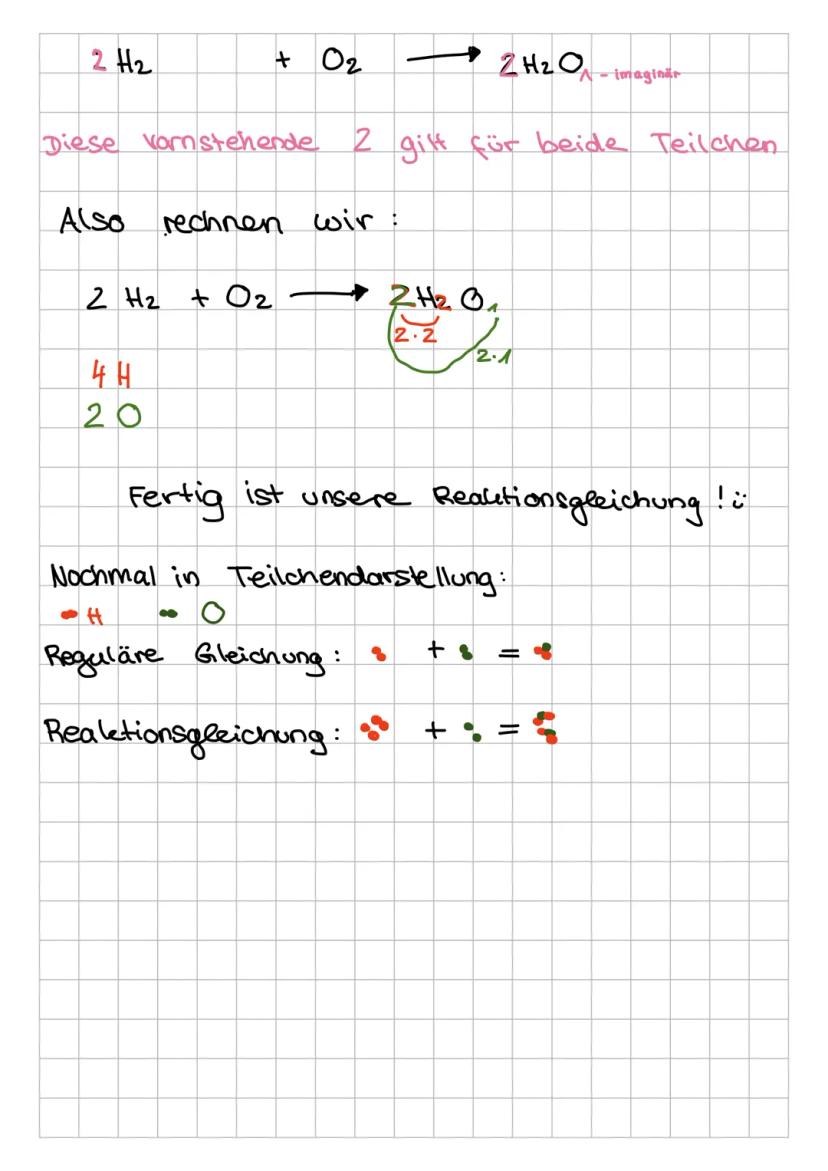 2 H₂ + O₂ ⟶ 2 H₂O₁ - imaginär
Diese vornstehende 2 gilt für beide Teilchen
Also rechnen wir :
2 H₂ + O₂ ⟶ 2 H₂ O₁
2·2
2·1
4 H
2 O
Fertig ist unsere Reaktionsgleichung ! ü
Nochmal in Teilchendarstellung:
H O
Reguläre Gleichung : + =
Reaktionsgleichung : + =